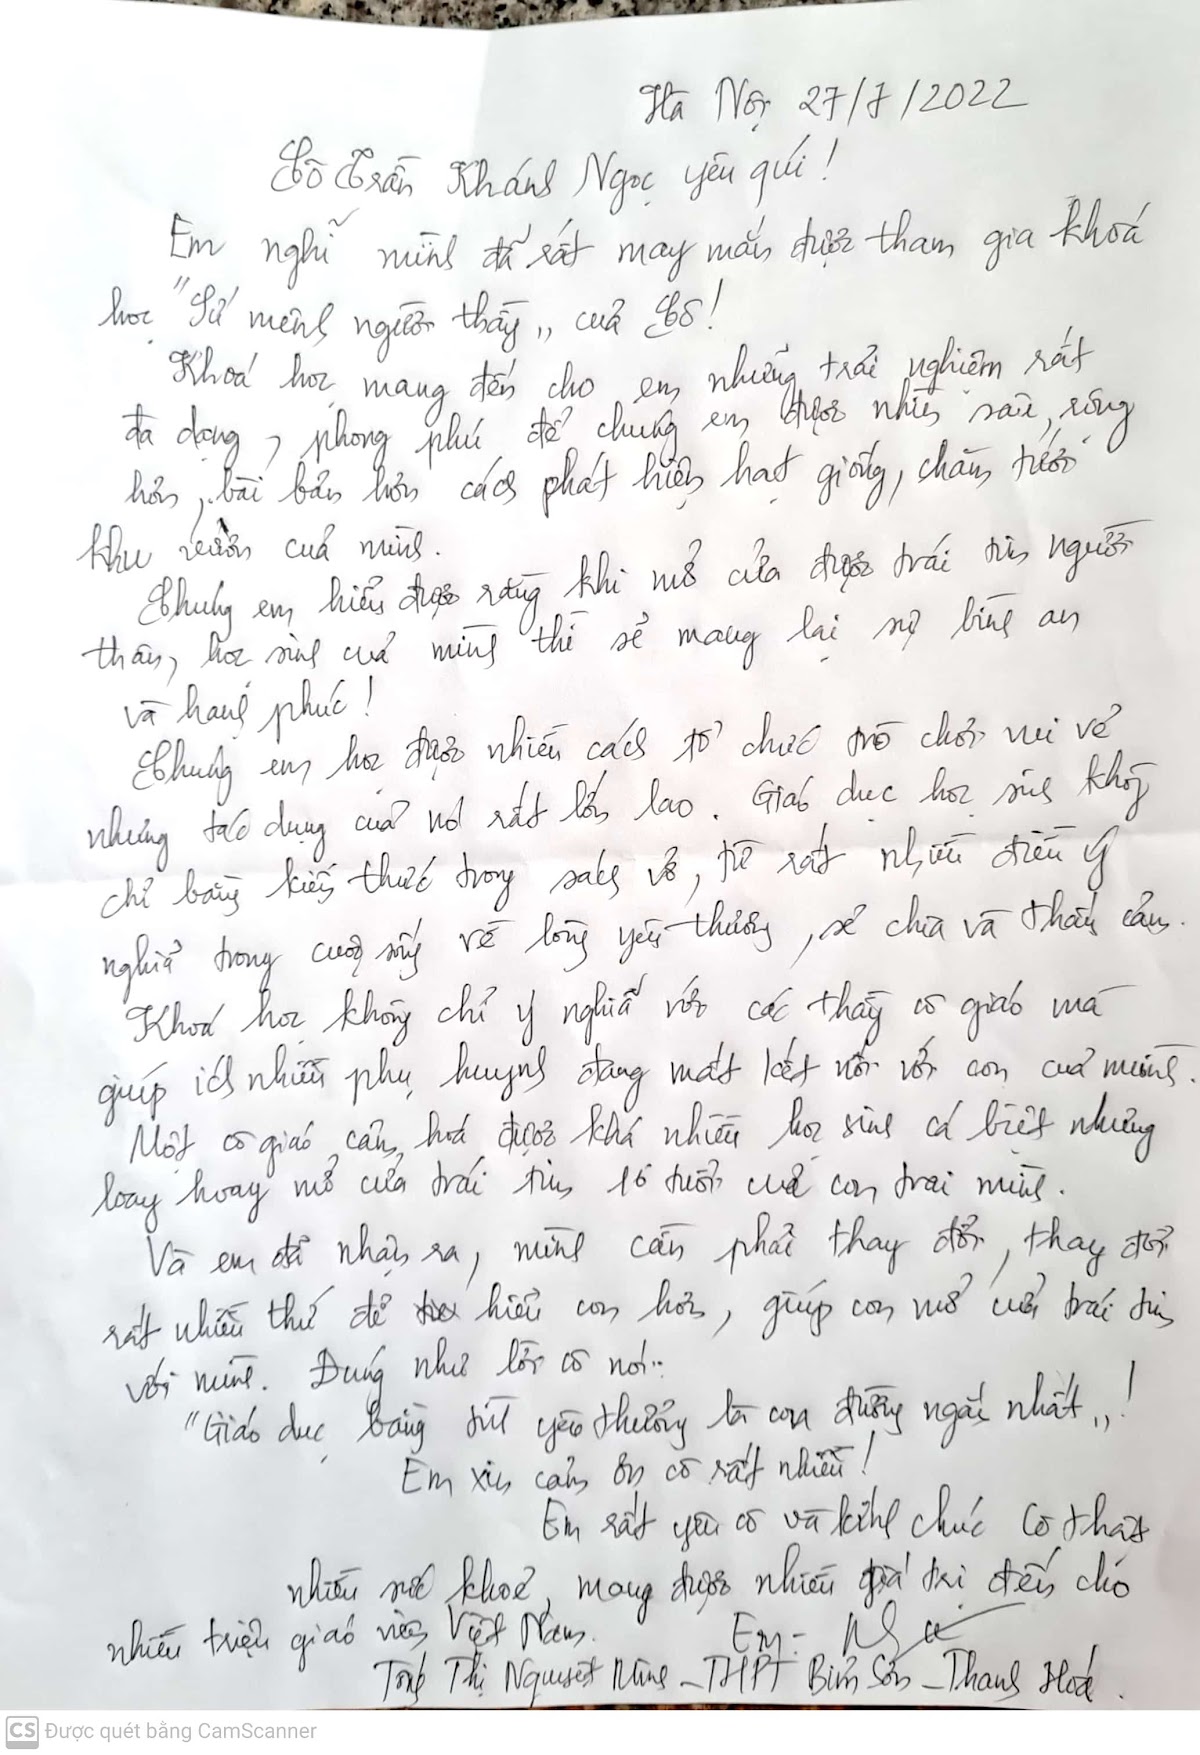 Hà Nội 27/7/2022
Cô Trần Khánh Ngọc yêu quí!
Em nghĩ mình đã rất may mắn được tham gia khoá
học "Sứ mệnh người thầy" của Cô!
Khoá học mang đến cho em những trải nghiệm rất
đa dạng, phong phú để chúng em được nhìn sâu, rộng
hơn, bài bản hơn cách phát hiện hạt giống, chăm tưới
khu vườn của mình.
Chúng em hiểu được rằng khi mở cửa được trái tim người
thân, học sinh của mình thì sẽ mang lại sự bình an
và hạnh phúc!
Chúng em học được nhiều cách tổ chức trò chơi vui vẻ
nhưng tác dụng của nó rất lớn lao. Giáo dục học sinh không
chỉ bằng kiến thức trong sách vở, từ rất nhiều điều ý
nghĩa trong cuộc sống về lòng yêu thương, sẻ chia và thấu cảm.
Khoá học không chỉ ý nghĩa với các thầy cô giáo mà
giúp ích nhiều phụ huynh đang mất kết nối với con của mình.
Một cô giáo cảm hoá được khá nhiều học sinh cá biệt nhưng
loay hoay mở cửa trái tim 16 tuổi của con trai mình.
Và em đã nhận ra, mình cần phải thay đổi, thay đổi
rất nhiều thứ để hiểu con hơn, giúp con mở cửa trái tim
với mình. Đúng như lời cô nói:
"Giáo dục bằng tình yêu thương là con đường ngắn nhất"!
Em xin cảm ơn cô rất nhiều!
Em rất yêu cô và kính chúc Cô thật
nhiều sức khoẻ, mang được nhiều giá trị đến cho
nhiều triệu giáo viên Việt Nam.
Em:
Tống Thị Nguyệt Minh - THPT Bỉm Sơn - Thanh Hoá.
CS Được quét bằng CamScanner